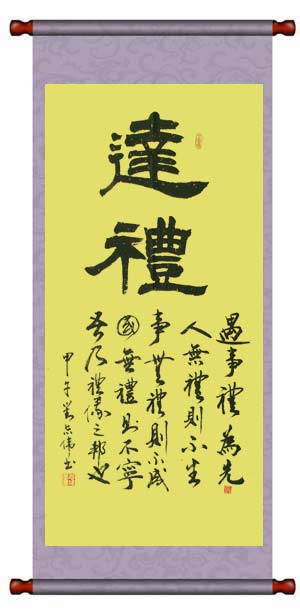 達禮
遇事禮為先
人無禮則不生
事無禮則不成
國無禮則不寧
吾乃禮儀之邦也
甲午 書